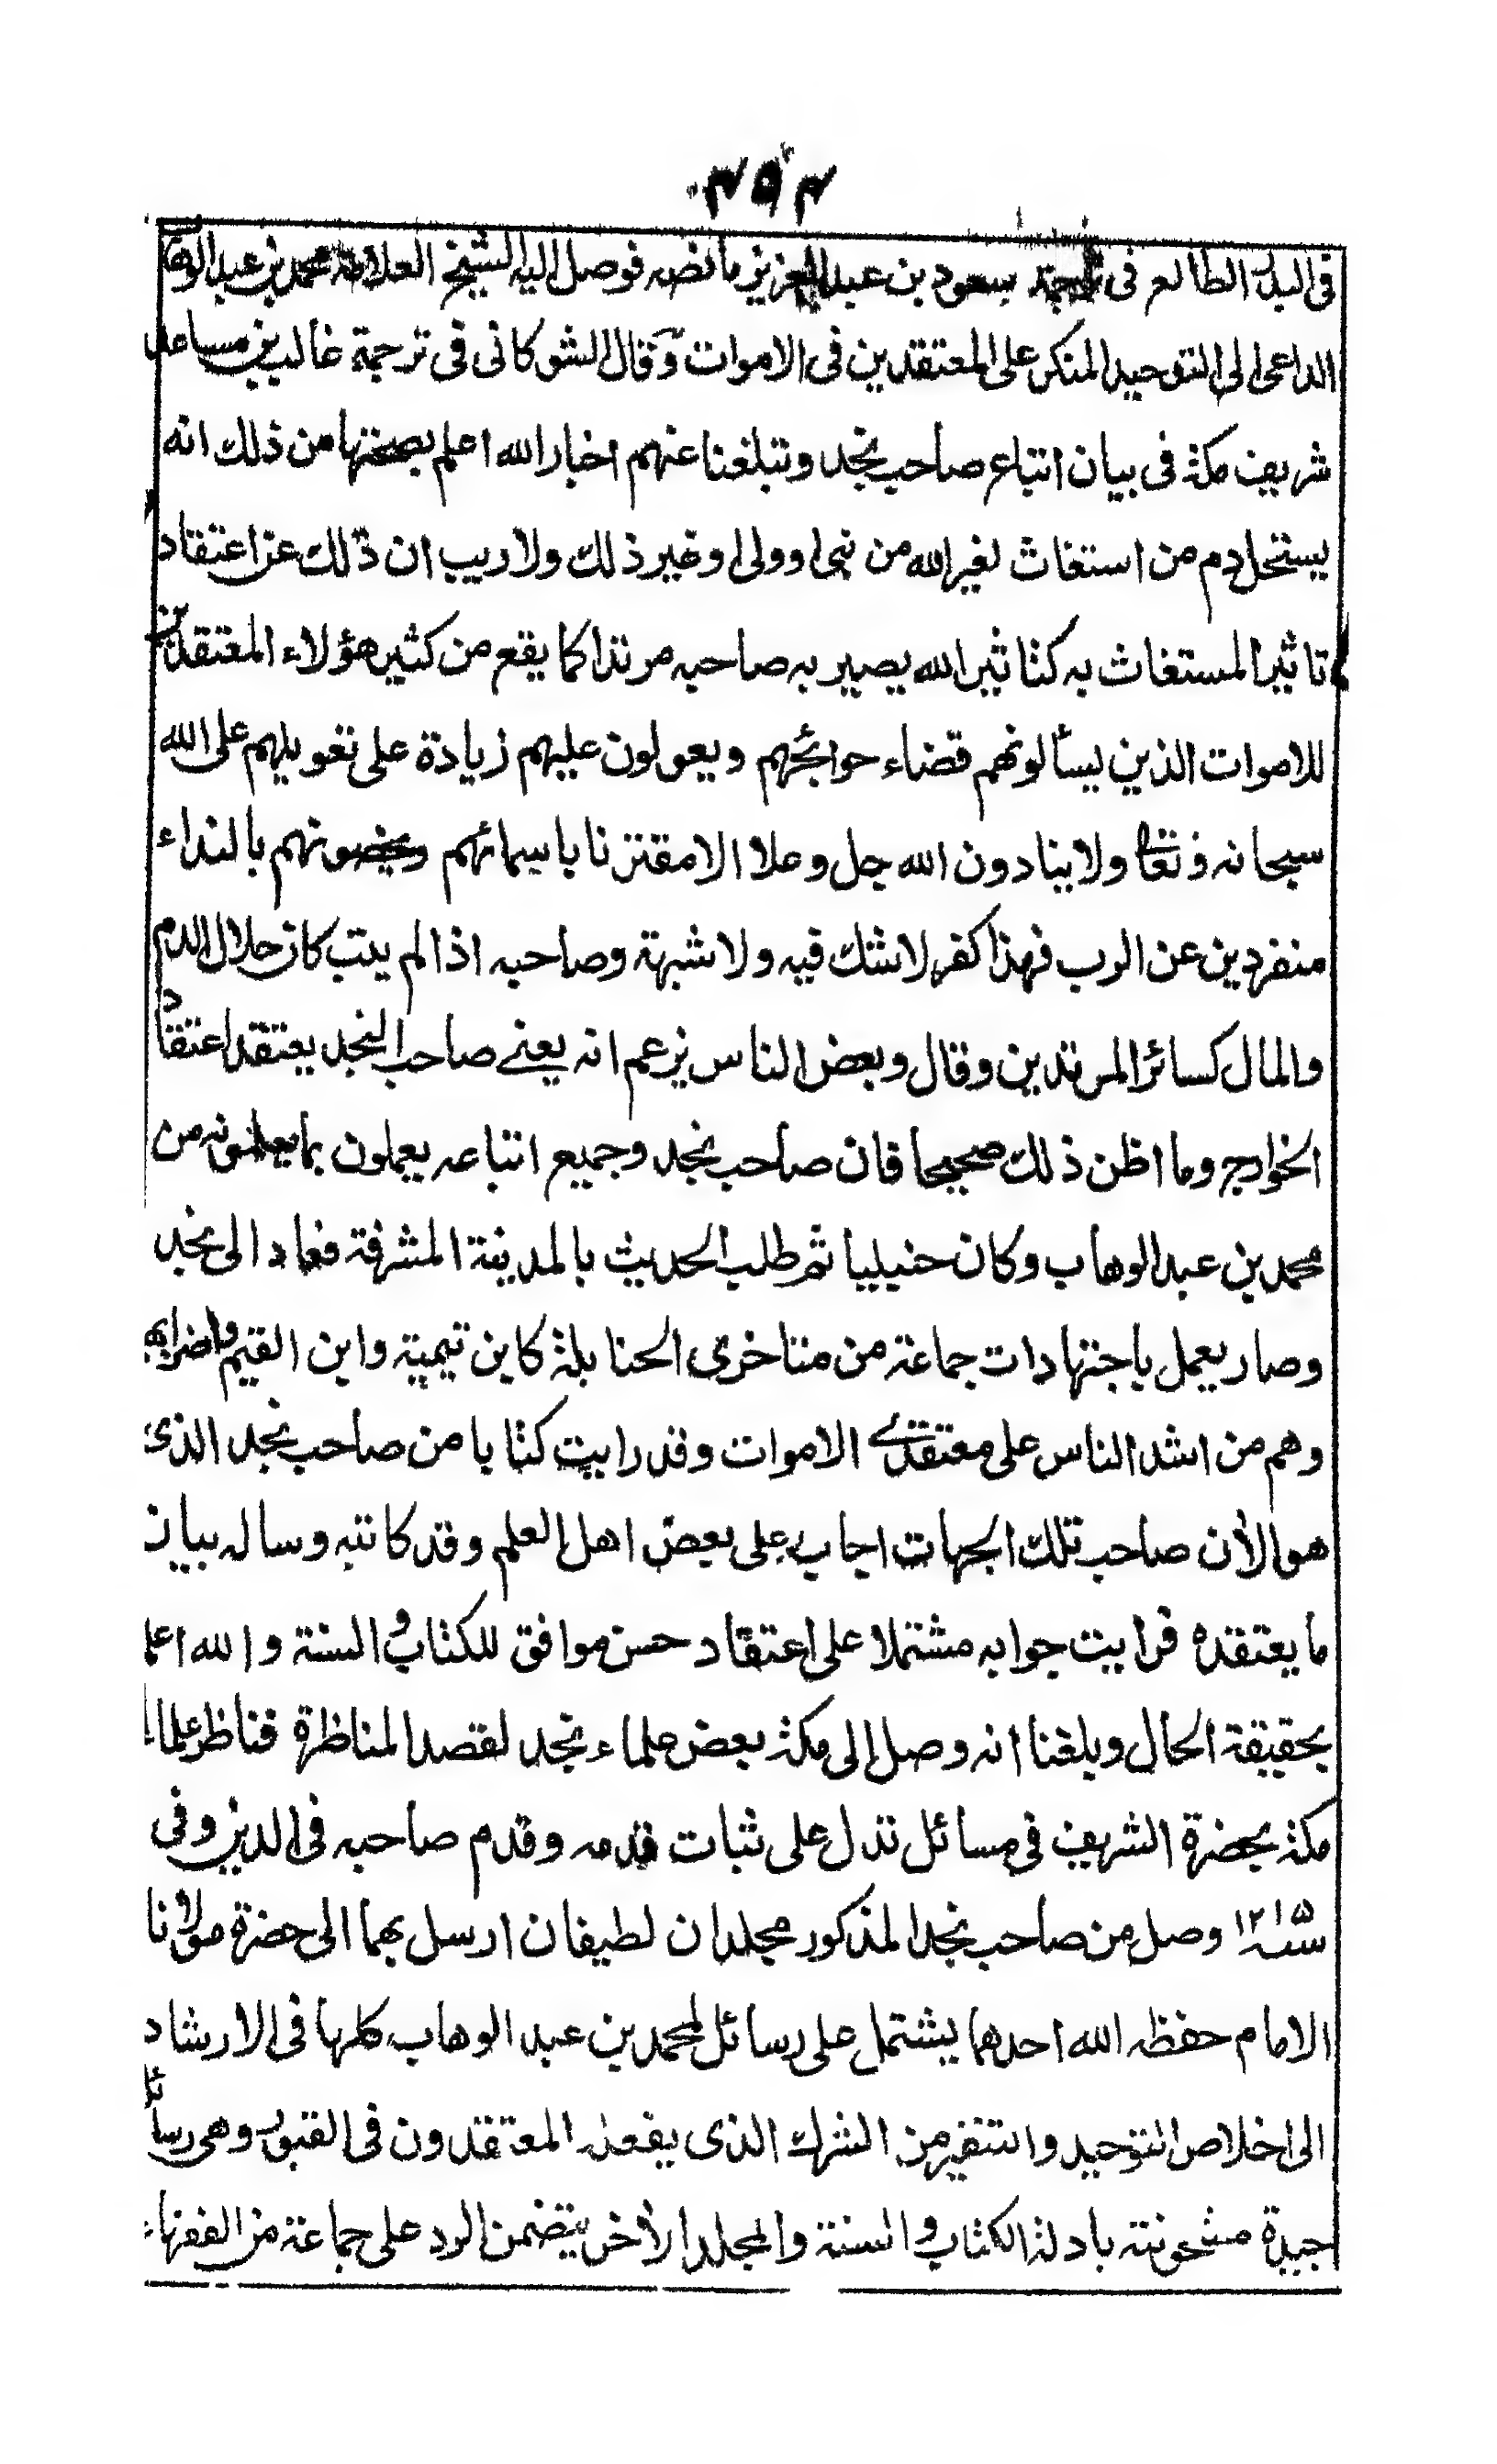 ٣٥٣
فى البدر الطالع فى ترجمة سعود بن عبد العزيز ما نصه فوصل اليه الشيخ العلامة محمد بن عبد الوهاب
الداعى الى التوحيد المنكر على المعتقدين فى الاموات وقال الشوكانى فى ترجمة غالب بن مساعد
شريف مكة فى بيان اتباع صاحب نجد وتبلغنا عنهم اخبار الله اعلم بصحتها من ذلك انه
يستحل دم من استغاث لغير الله من نبى او ولى او غير ذلك ولا ريب ان ذلك عن اعتقاد
تاثير المستغاث به كتاثير الله يصير به صاحبه مرتدا كما يقع من كثير هؤلاء المعتقدين
للاموات الذين يسألونهم قضاء حوائجهم ويعولون عليهم زيادة على تعويلهم على الله
سبحانه وتعالى ولا ينادون الله جل وعلا الا مقترنا باسمائهم ويخصونهم بالنداء
منفردين عن الرب فهذا كفر لا شك فيه ولا شبهة وصاحبه اذا لم يتب كان حلال الدم
والمال كسائر المرتدين وقال وبعض الناس يزعم انه يعنے صاحب النجد يعتقد اعتقاد
الخوارج وما اظن ذلك صحيحا فان صاحب نجد وجميع اتباعه يعملون بما يعلمونه من
محمد بن عبد الوهاب وكان حنبليا ثم طلب الحديث بالمدينة المشرفة فعاد الى نجد
وصار يعمل باجتهادات جماعة من متاخرى الحنابلة كابن تيمية وابن القيم واضرابهما
وهم من اشد الناس على معتقدے الاموات وقد رايت كتابا من صاحب نجد الذى
هو الأن صاحب تلك الجهات اجاب على بعض اهل العلم وقد كاتبه وساله بيان
ما يعتقده فرايت جوابه مشتملا على اعتقاد حسن موافق للكتاب والسنة والله اعلم
بحقيقة الحال وبلغنا انه وصل الى مكة بعض علماء نجد لقصد المناظرة فناظر علماء
مكة بحضرة الشريف فى مسائل تدل على ثبات قدمه وقدم صاحبه فى الدين وفى
سنة ١٢١٥ وصل من صاحب نجد المذكور مجلدان لطيفان ارسل بهما الى حضرة مولانا
الامام حفظه الله احدهما يشتمل على رسائل لمحمد بن عبد الوهاب كلها فى الارشاد
الى اخلاص التوحيد والتنفير من الشرك الذى يفعله المعتقدون فى القبور وهى رسائل
جيدة مشحونة بادلة الكتاب والسنة والمجلد الأخر يتضمن الرد على جماعة من الفقهاء